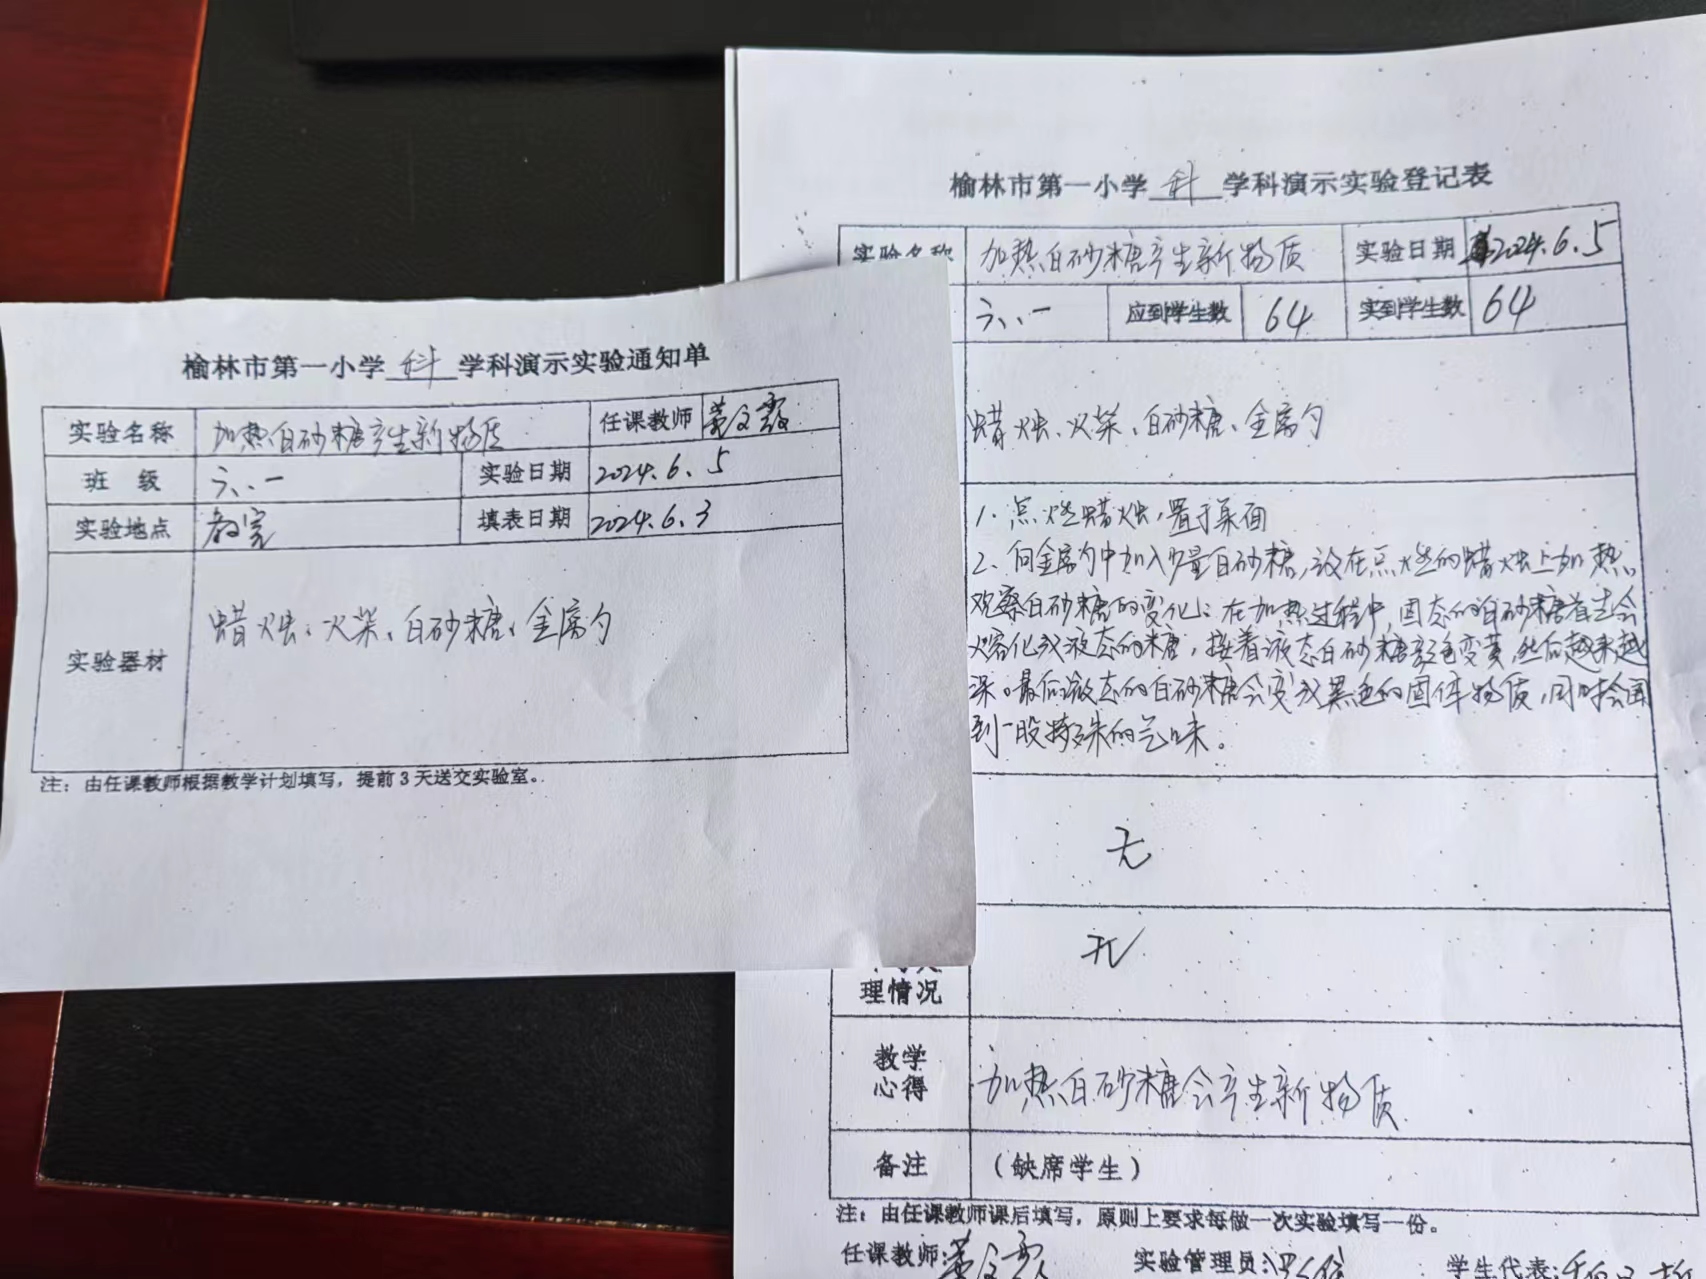 榆林市第一小学 科 学科演示实验通知单
实验名称 加热白砂糖产生新物质 任课教师
班 级 六、一 实验日期 2024.6.5
实验地点 教室 填表日期 2024.6.3
实验器材 蜡烛、火柴、白砂糖、金属勺
注：由任课教师根据教学计划填写，提前3天送交实验室。
榆林市第一小学 科 学科演示实验登记表
实验名称 加热白砂糖产生新物质 实验日期 2024.6.5
六、一 应到学生数 64 实到学生数 64
蜡烛、火柴、白砂糖、金属勺
1. 点燃蜡烛，置于桌面
2、向金属勺中加入少量白砂糖，放在点燃的蜡烛上加热，
观察白砂糖的变化：在加热过程中，固态的白砂糖首先会
熔化成液态的糖，接着液态白砂糖颜色变黄，然后越来越
深。最后液态的白砂糖会变成黑色的固体物质，同时会闻
到一股特殊的气味。
无
无
理情况
教学
心得 加热白砂糖会产生新物质
备注 （缺席学生）
注：由任课教师课后填写，原则上要求每做一次实验填写一份。
任课教师: 实验管理员: 学生代表: